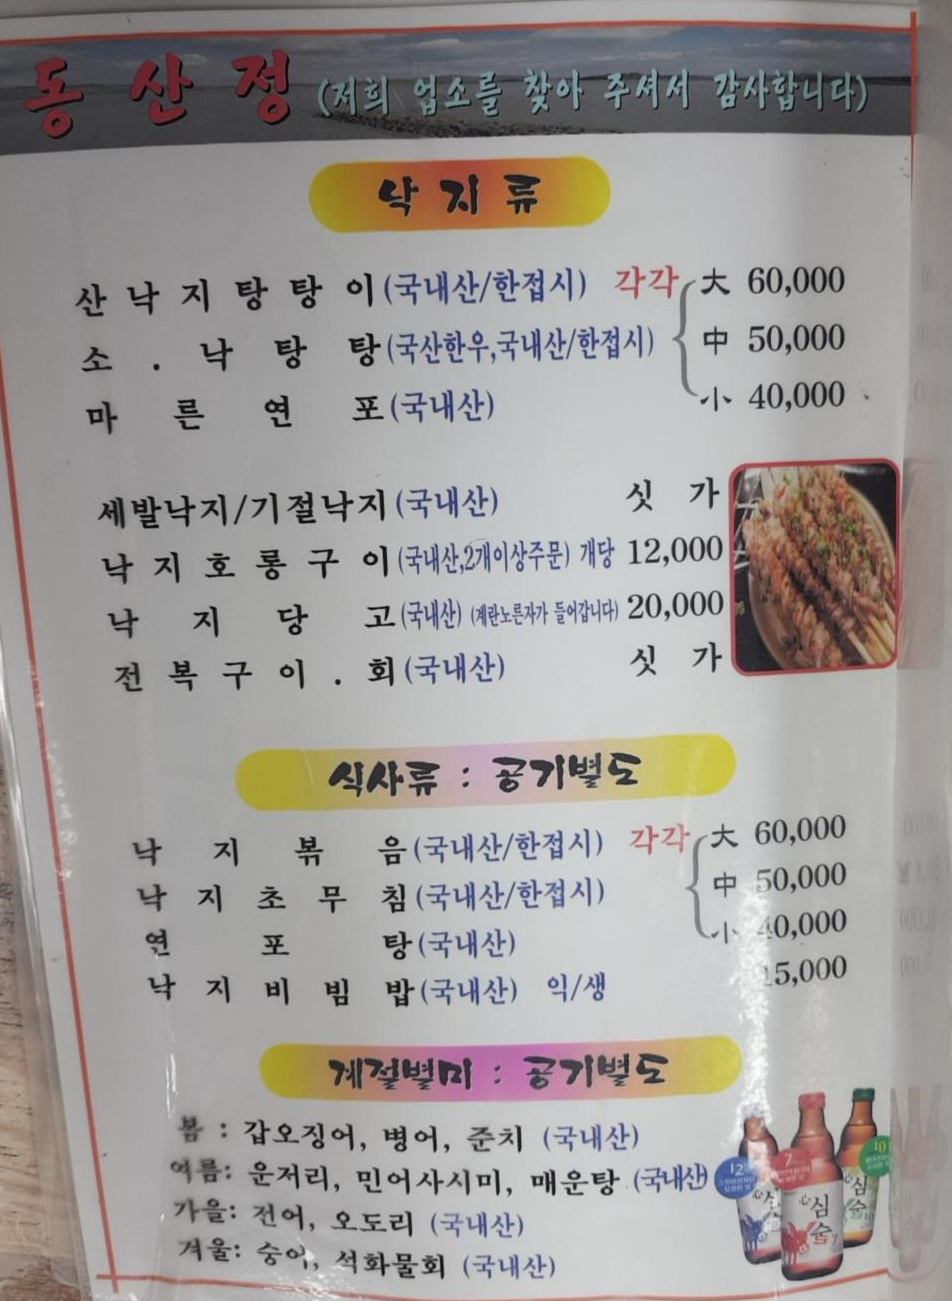 동 산 정 (저희 업소를 찾아 주셔서 감사합니다)
낙 지 류
산 낙 지 탕 탕 이 (국내산/한접시) 각각 大 60,000
소 . 낙 탕 탕 (국산한우,국내산/한접시) 中 50,000
마 른 연 포 (국내산) 小 40,000
세발낙지/기절낙지 (국내산) 싯 가
낙 지 호 롱 구 이 (국내산,2개이상주문) 개당 12,000
낙 지 당 고 (국내산) (계란노른자가 들어갑니다) 20,000
전 복 구 이 . 회 (국내산) 싯 가
식사류 : 공기별도
낙 지 볶 음 (국내산/한접시) 각각 大 60,000
낙 지 초 무 침 (국내산/한접시) 中 50,000
연 포 탕 (국내산) 小 40,000
낙 지 비 빔 밥 (국내산) 익/생 15,000
계절별미 : 공기별도
봄 : 갑오징어, 병어, 준치 (국내산)
여름: 운저리, 민어사시미, 매운탕 (국내산)
가을: 전어, 오도리 (국내산)
겨울: 숭어, 석화물회 (국내산)
12
7
10
심
술
7
심
술